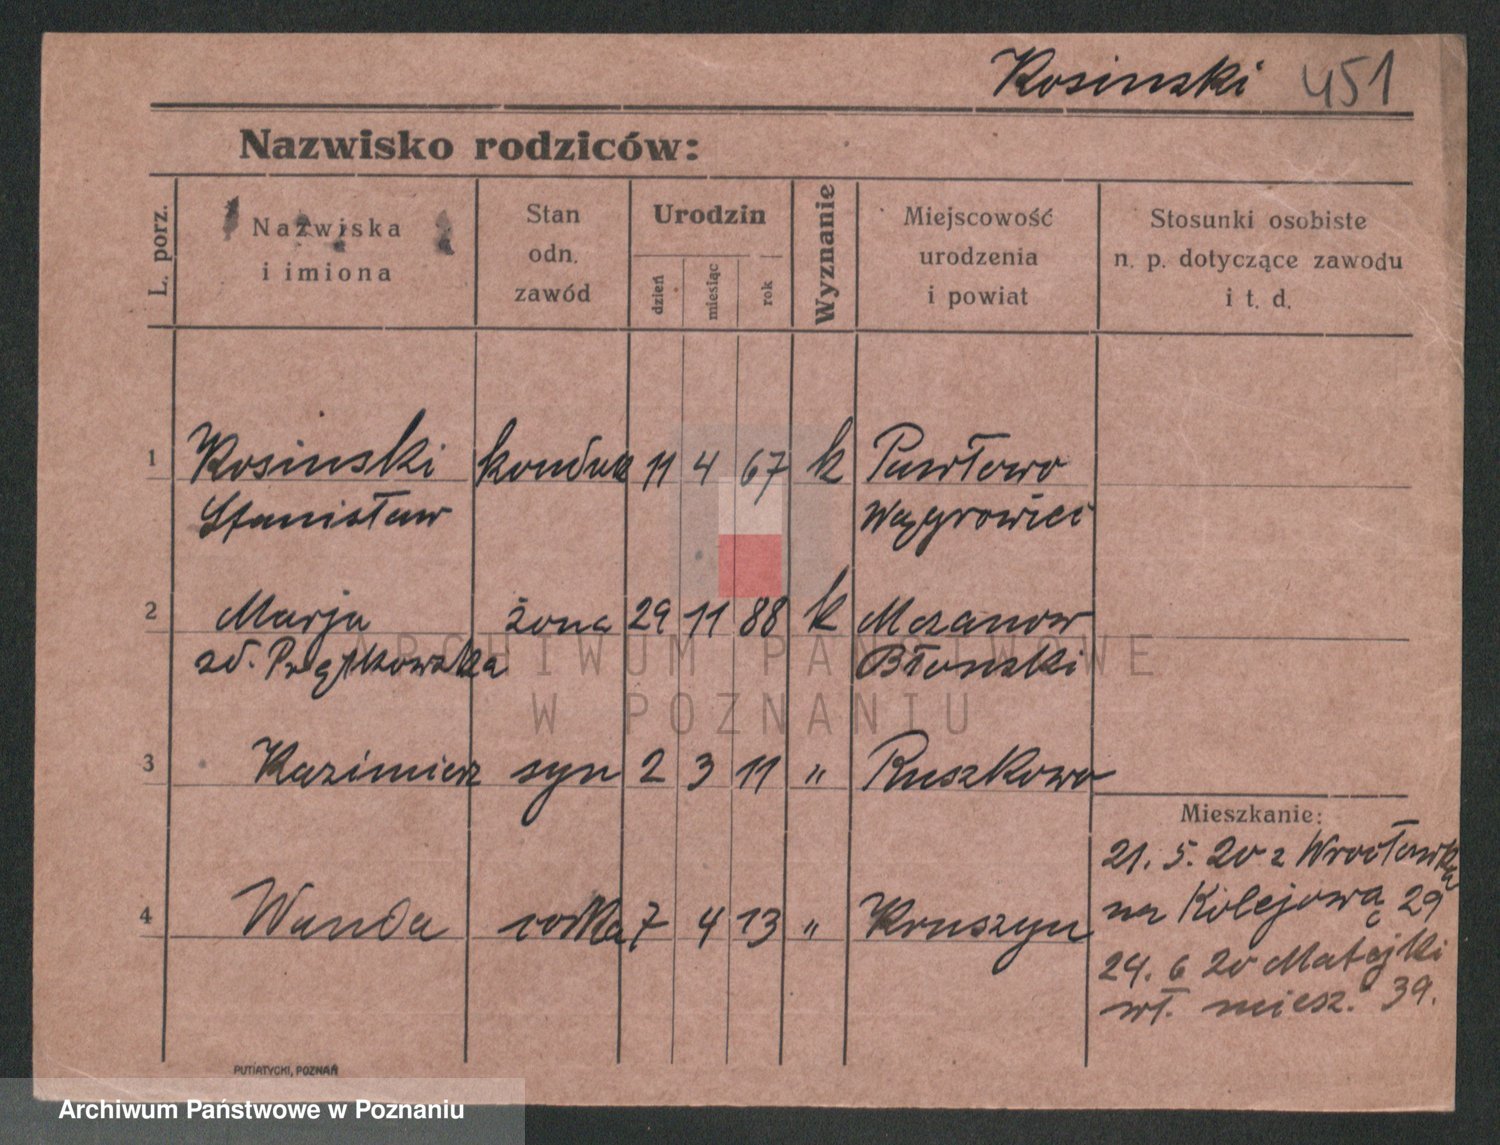 Kosinski 451
Nazwisko rodziców:
L. porz.
Nazwiska
i imiona
Stan
odn.
zawód
Urodzin
dzień
miesiąc
rok
Wyznanie
Miejscowość
urodzenia
i powiat
Stosunki osobiste
n. p. dotyczące zawodu
i t. d.
1 Kosinski konduk 11 4 67 k Pawłowo
Stanisław Wągrowiec
2 Marja żona 29 11 88 k
zd. Błonski
3 Kazimierz syn 2 3 11 " Ruszkowo
Mieszkanie:
21. 5. 20 z Wrocławka
na Kolejową 29
4 Wanda córka 7 4 13 " Kruszyn
24. 6 20 Matejki
wł. miesz. 39.
PUTIATYCKI, POZNAŃ
ARCHIWUM PAŃSTWOWE
W POZNANIU
Archiwum Państwowe w Poznaniu